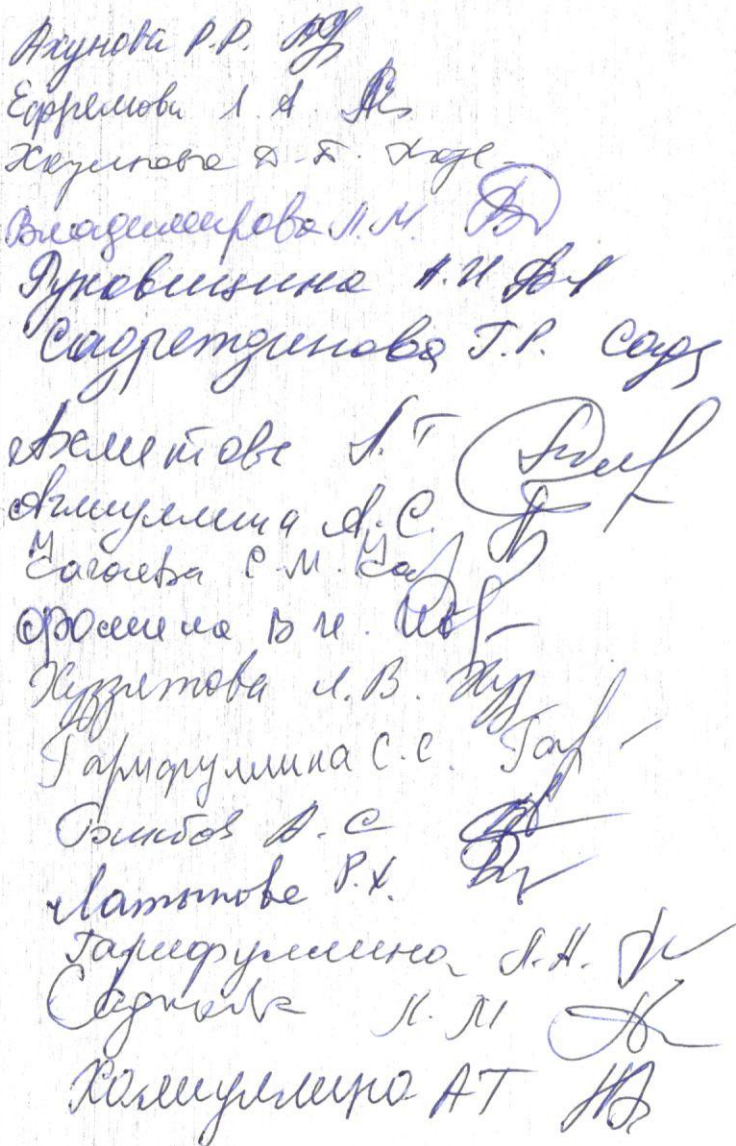 Ахунова Р.Р.
Ефремова Л А
Владимирова Л.М.
Руковишина А.И
Садретдинова Г.Р. Сад
Ахметова Л.Т
Азмуллина А.С.
Чагаева С.М. Чаг
Фомина В И.
Хуззятова Л.В. Хуз
Гарифуллина С.С. Гар
А.С
Латыпова Р.Х.
Гарифуллина Л.Н.
Садыкова Л.М
Хамиуллина АТ